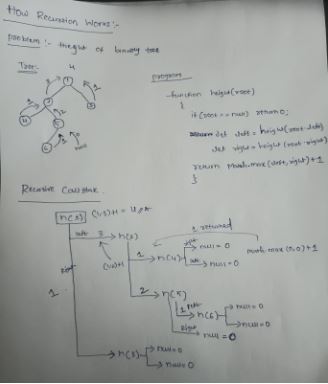 How Recursion Works:-
problem:- height of binary tree
Tree:-
4
1
3
1
2
3
1
2
4
5
1
0
6
null
program
function height(root)
{
if (root == null) return 0;
let left = height(root.left)
let right = height(root.right)
return Math.max(left, right)+1
}
Recursive Call stack.
h(1) (3,1)+1 = 4
left 3 → h(2)
(1,2)+1
1 returned
1 → h(4) → null = 0
→ null = 0
math.max(0,0)+1
2 → h(5)
1 left → h(6) → null = 0
→ null = 0
right → null = 0
right
1
→ h(3) → null = 0
→ null = 0